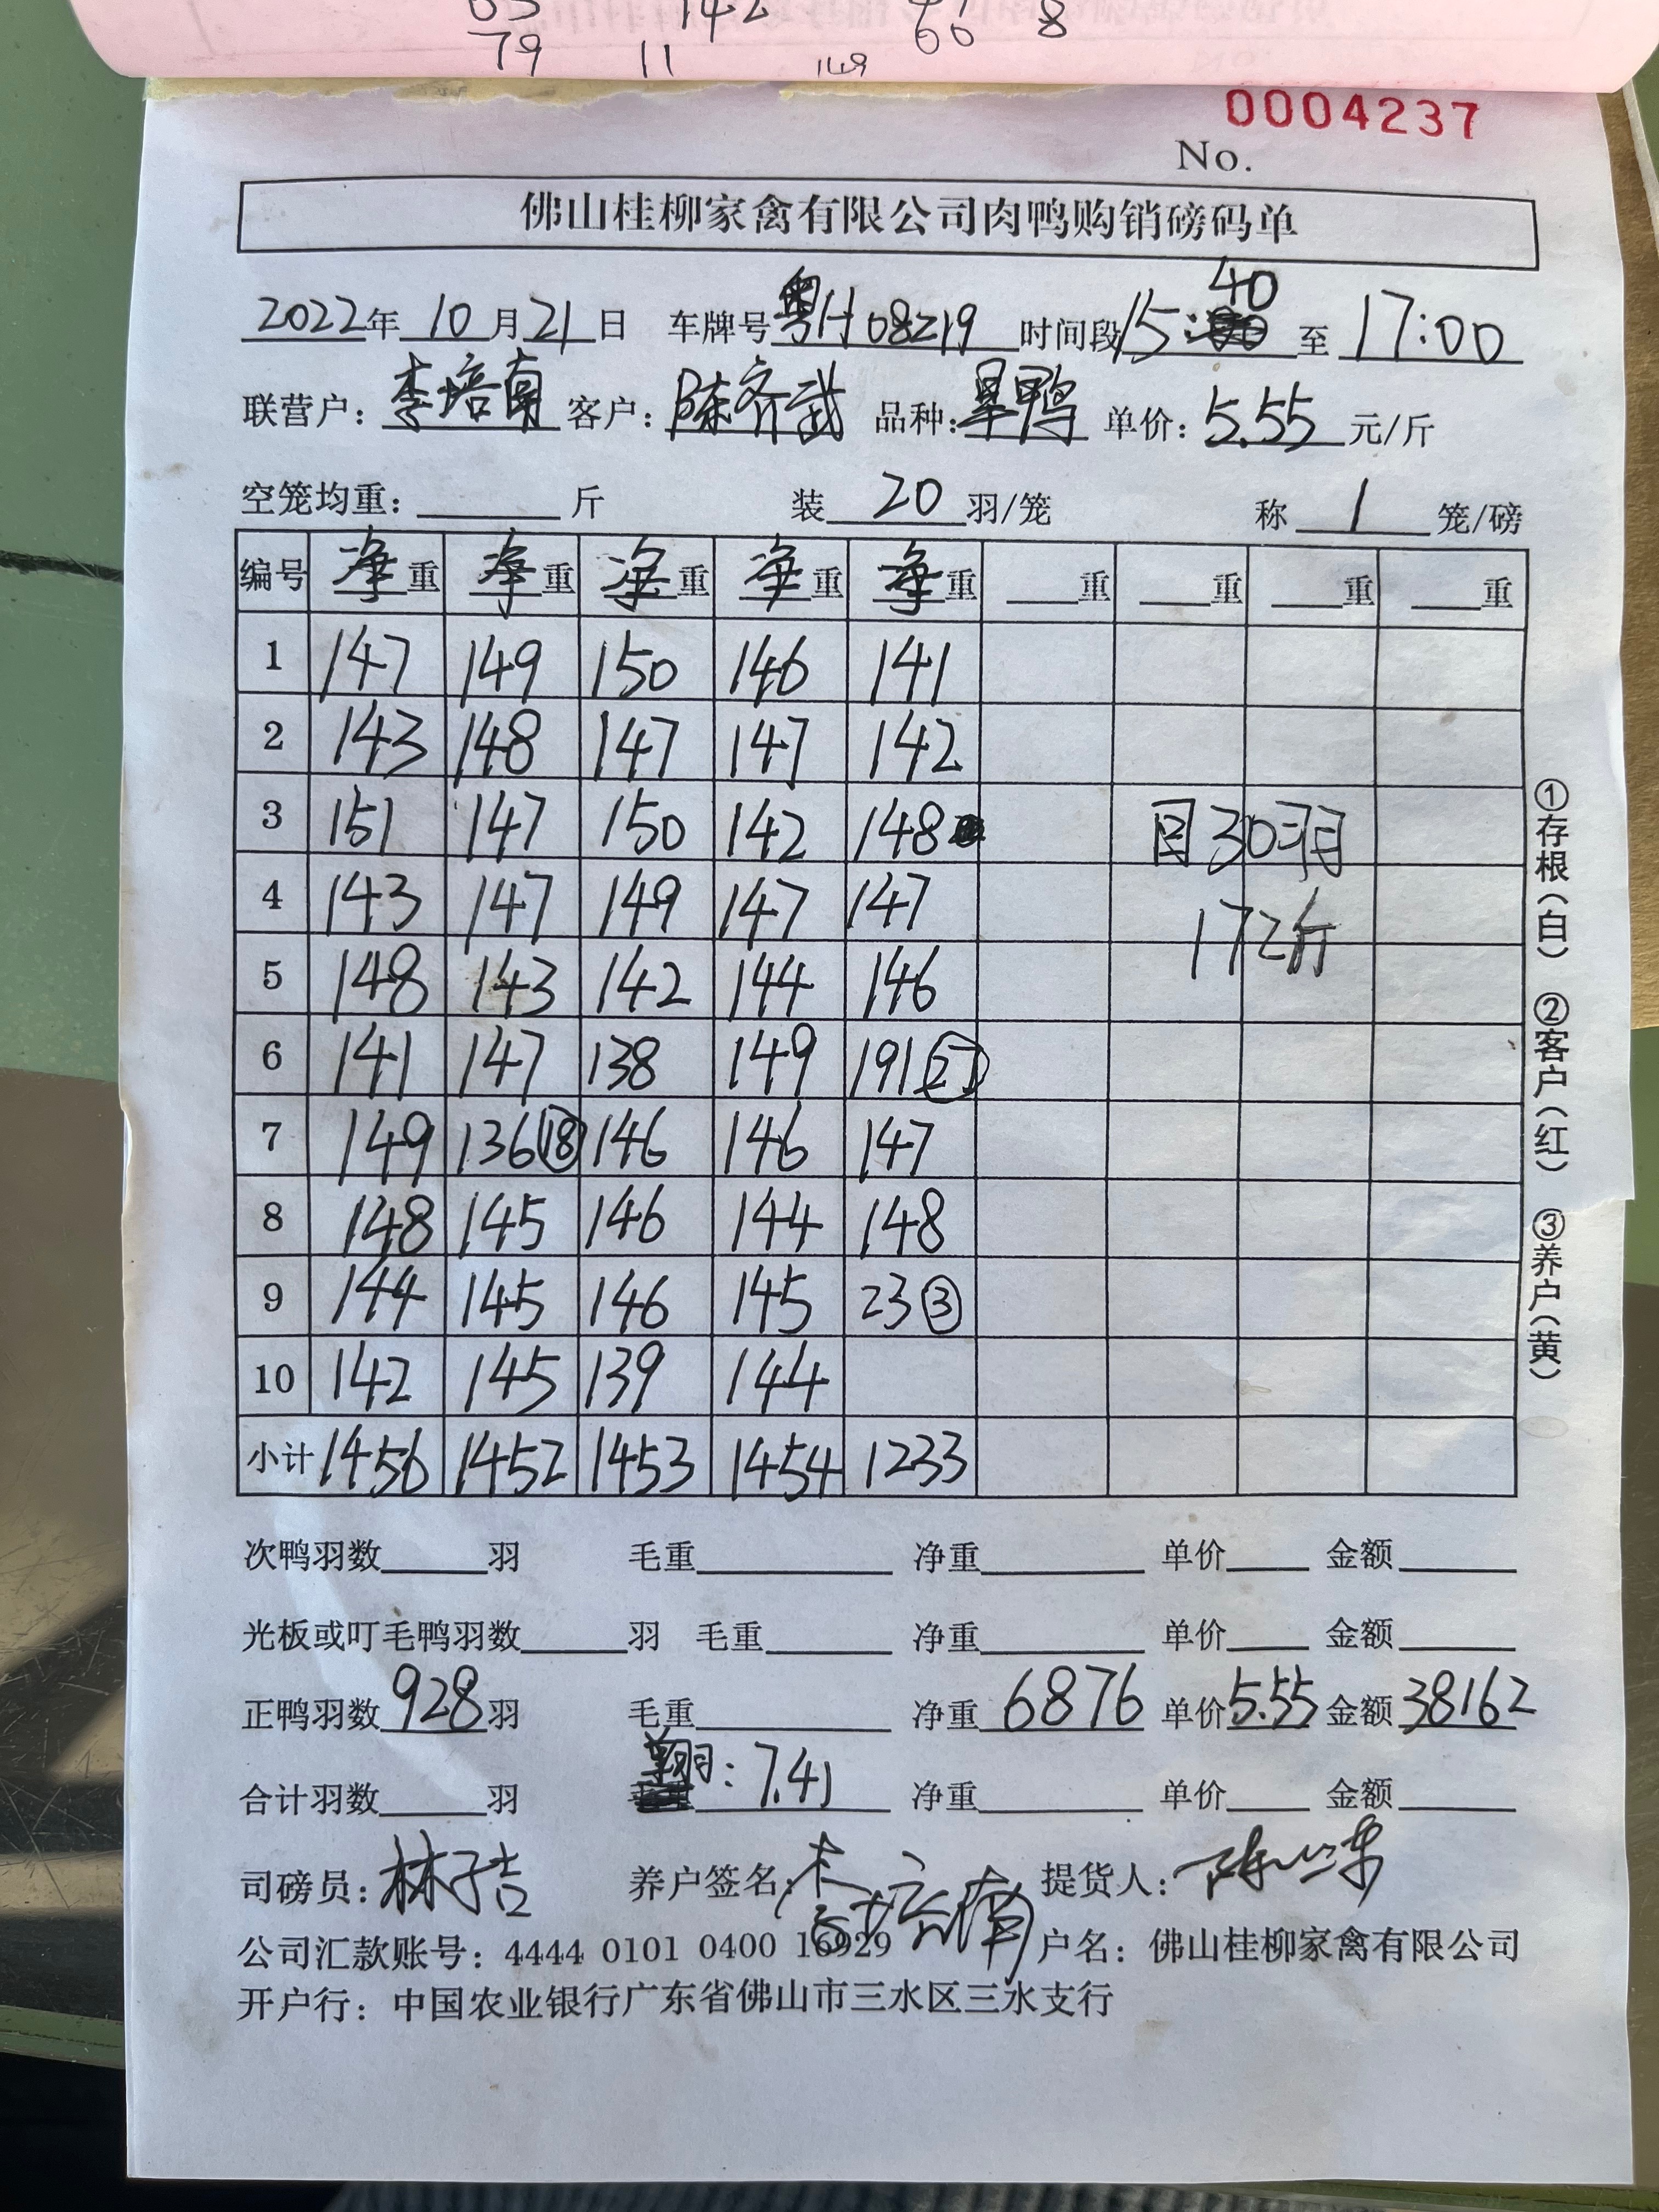 79 11 149
0004237
No.
佛山桂柳家禽有限公司肉鸭购销磅码单
2022年 10月21日 车牌号粤H08219 时间段15:40 至 17:00
联营户: 李培南 客户: 陈齐武 品种: 旱鸭 单价: 5.55 元/斤
空笼均重: 斤 装 20 羽/笼 称 1 笼/磅
编号 净重 净重 净重 净重 净重 重 重 重 重
1 147 149 150 146 141
2 143 148 147 147 142
3 151 147 150 142 148 目30羽
4 143 147 149 147 147 172斤
5 148 143 142 144 146
6 141 147 138 149 191
7 149 136⑱ 146 146 147
8 148 145 146 144 148
9 144 145 146 145 23③
10 142 145 139 144
小计 1456 1452 1453 1454 1233
①存根(白) ②客户(红) ③养户(黄)
次鸭羽数 羽 毛重 净重 单价 金额
光板或叮毛鸭羽数 羽 毛重 净重 单价 金额
正鸭羽数 928 羽 毛重 净重 6876 单价 5.55 金额 38162
合计羽数 羽 : 7.41 净重 单价 金额
司磅员: 林子吉 养户签名: 李培南 提货人:
公司汇款账号: 4444 0101 0400 16929 户名: 佛山桂柳家禽有限公司
开户行: 中国农业银行广东省佛山市三水区三水支行